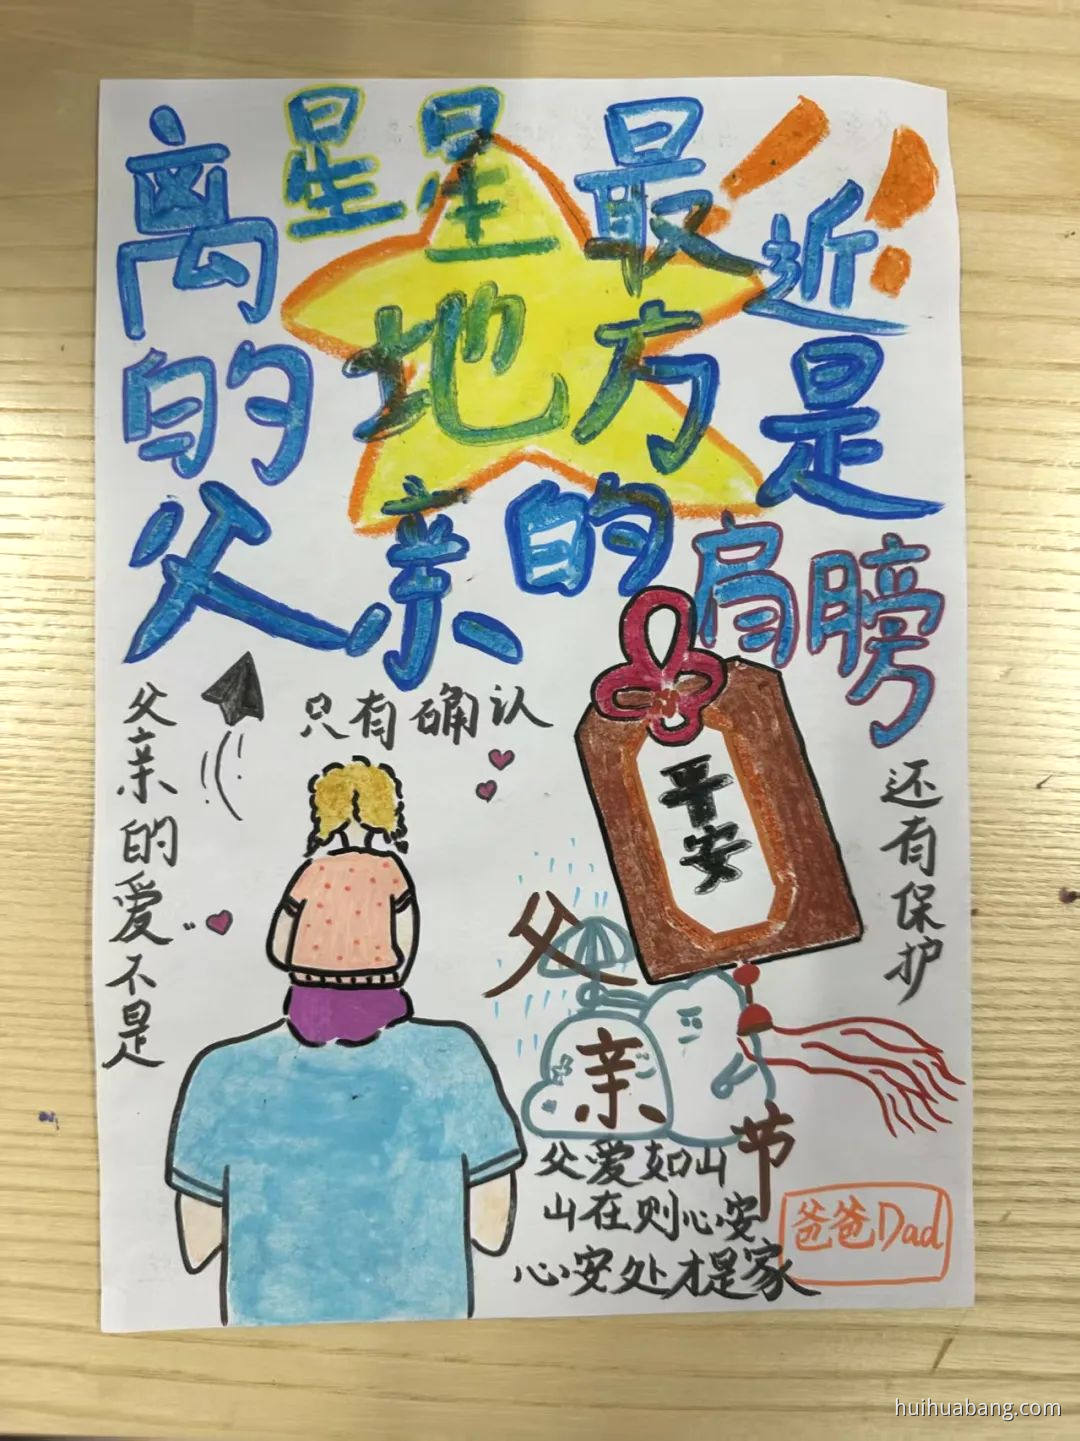 离星星最近
的地方是
父亲的肩膀
父亲的爱不是
只有确认
还有保护
平安
父亲节
父爱如山
山在则心安
心安处才是家
爸爸Dad
huihuabang.com